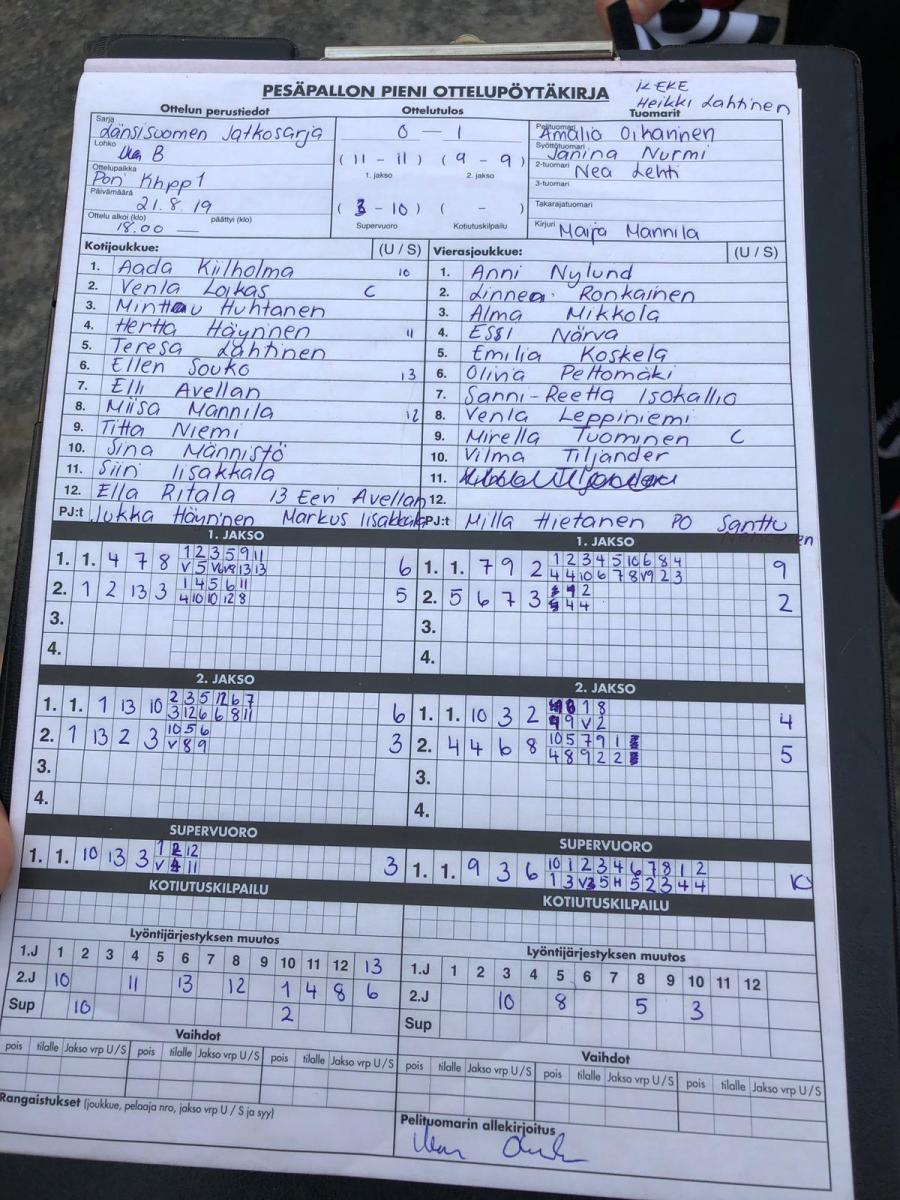 KEKE
PESÄPALLON PIENI OTTELUPÖYTÄKIRJA Heikki Lahtinen
Ottelun perustiedot Ottelutulos Tuomarit
Sarja Länsisuomen Jatkosarja 0 - 1 Pelituomari Amalia Oihannen
Lohko B (11 - 11) (9 - 9) Syöttötuomari Janina Nurmi
1. jakso 2. jakso 2-tuomari Nea Lehti
Ottelupaikka Pori Khpp1 3-tuomari
Päivämäärä 21.8.19 (3 - 10) ( - ) Takarajatuomari
Ottelu alkoi (klo) 18.00 päättyi (klo) — Supervuoro Kotiutuskilpailu Kirjuri Maija Mannila
Kotijoukkue: (U / S) Vierasjoukkue: (U / S)
1. Aada Kiilholma 10 1. Anni Nylund
2. Venla Loikas C 2. Linnea Ronkainen
3. Minttu Huhtanen 3. Alma Mikkola
4. Hertta Häyrinen 11 4. Essi Närvä
5. Teresa Lahtinen 5. Emilia Koskela
6. Ellen Souko 13 6. Olivia Peltomäki
7. Elli Avellan 7. Sanni-Reetta Isokallio
8. Miisa Mannila 12 8. Venla Leppiniemi
9. Titta Niemi 9. Mirella Tuominen C
10. Sina Männistö 10. Vilma Tiljander
11. Siiri Iisakkala 11.
12. Ella Ritala 13 Eevi Avellan 12.
PJ:t Jukka Häyrinen Markus Iisakkala PJ:t Milla Hietanen PO Santtu
1. JAKSO 1. JAKSO
1. 1. 4 7 8 1 2 3 5 9 11 6 1. 1. 7 9 2 1 2 3 4 5 10 6 8 4 9
V 5 V6 V8 13 13 4 4 10 6 7 8 V9 2 3
2. 1 2 13 3 1 4 5 6 11 5 2. 5 6 7 3 2 2
4 10 10 12 8 4 4
3. 3.
4. 4.
2. JAKSO 2. JAKSO
1. 1. 1 13 10 2 3 5 12 6 7 6 1. 1. 10 3 2 1 8 4
3 12 6 6 8 11 9 V 2
2. 1 13 2 3 10 5 6 3 2. 4 4 6 8 10 5 7 9 1 5
V 8 9 4 8 9 2 2
3. 3.
4. 4.
SUPERVUORO SUPERVUORO
1. 1. 10 13 3 1 2 12 3 1. 1. 9 3 6 10 1 2 3 4 6 7 8 1 2 10
V 4 11 1 3 V3 5 H 5 2 3 4 4
KOTIUTUSKILPAILU KOTIUTUSKILPAILU
Lyöntijärjestyksen muutos Lyöntijärjestyksen muutos
1.J 1 2 3 4 5 6 7 8 9 10 11 12 13 1.J 1 2 3 4 5 6 7 8 9 10 11 12
2.J 10 11 13 12 1 4 8 6 2.J 10 8 5 3
Sup 10 2 Sup
Vaihdot Vaihdot
pois tilalle Jakso vrp U / S pois tilalle Jakso vrp U / S pois tilalle Jakso vrp U / S pois tilalle Jakso vrp U / S pois tilalle Jakso vrp U / S pois tilalle Jakso vrp U / S
Rangaistukset (joukkue, pelaaja nro, jakso vrp U / S ja syy)
Pelituomarin allekirjoitus